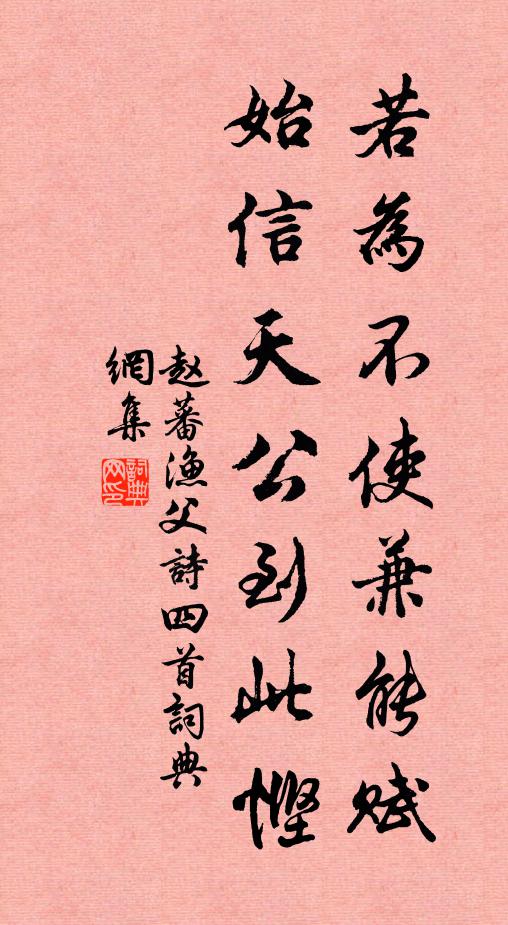 若為不使兼能赋
始信天公到此慳
赵蕃漁父詩四首詞典
網集
詞典
网印